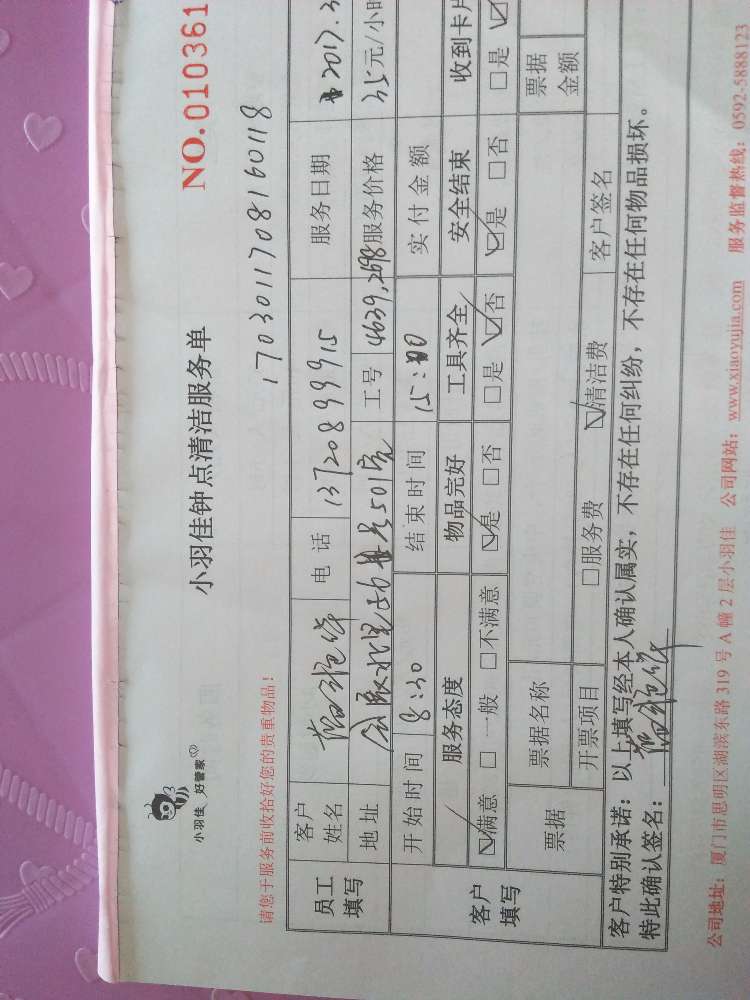 小羽佳 好管家
小羽佳钟点清洁服务单
NO.010361
1703011708160118
请您于服务前收拾好您的贵重物品!
员工填写
客户姓名 电话 13720899915 服务日期 2017.3
地址 501室 工号 4639,2698 服务价格 35元/小时
客户填写
开始时间 8:30 结束时间 15:00 实付金额
服务态度 物品完好 工具齐全 安全结束 收到卡片
☑满意 □一般 □不满意 ☑是 □否 □是 ☑否 ☑是 □否 □是
票据 票据名称 票据金额
开票项目 □服务费 ☑清洁费 客户签名
客户特别承诺:以上填写经本人确认属实,不存在任何纠纷,不存在任何物品损坏。
特此确认签名:
公司地址:厦门市思明区湖滨东路 319 号 A 幢 2 层小羽佳 公司网站:www.xiaoyujia.com 服务监督热线:0592-5888123